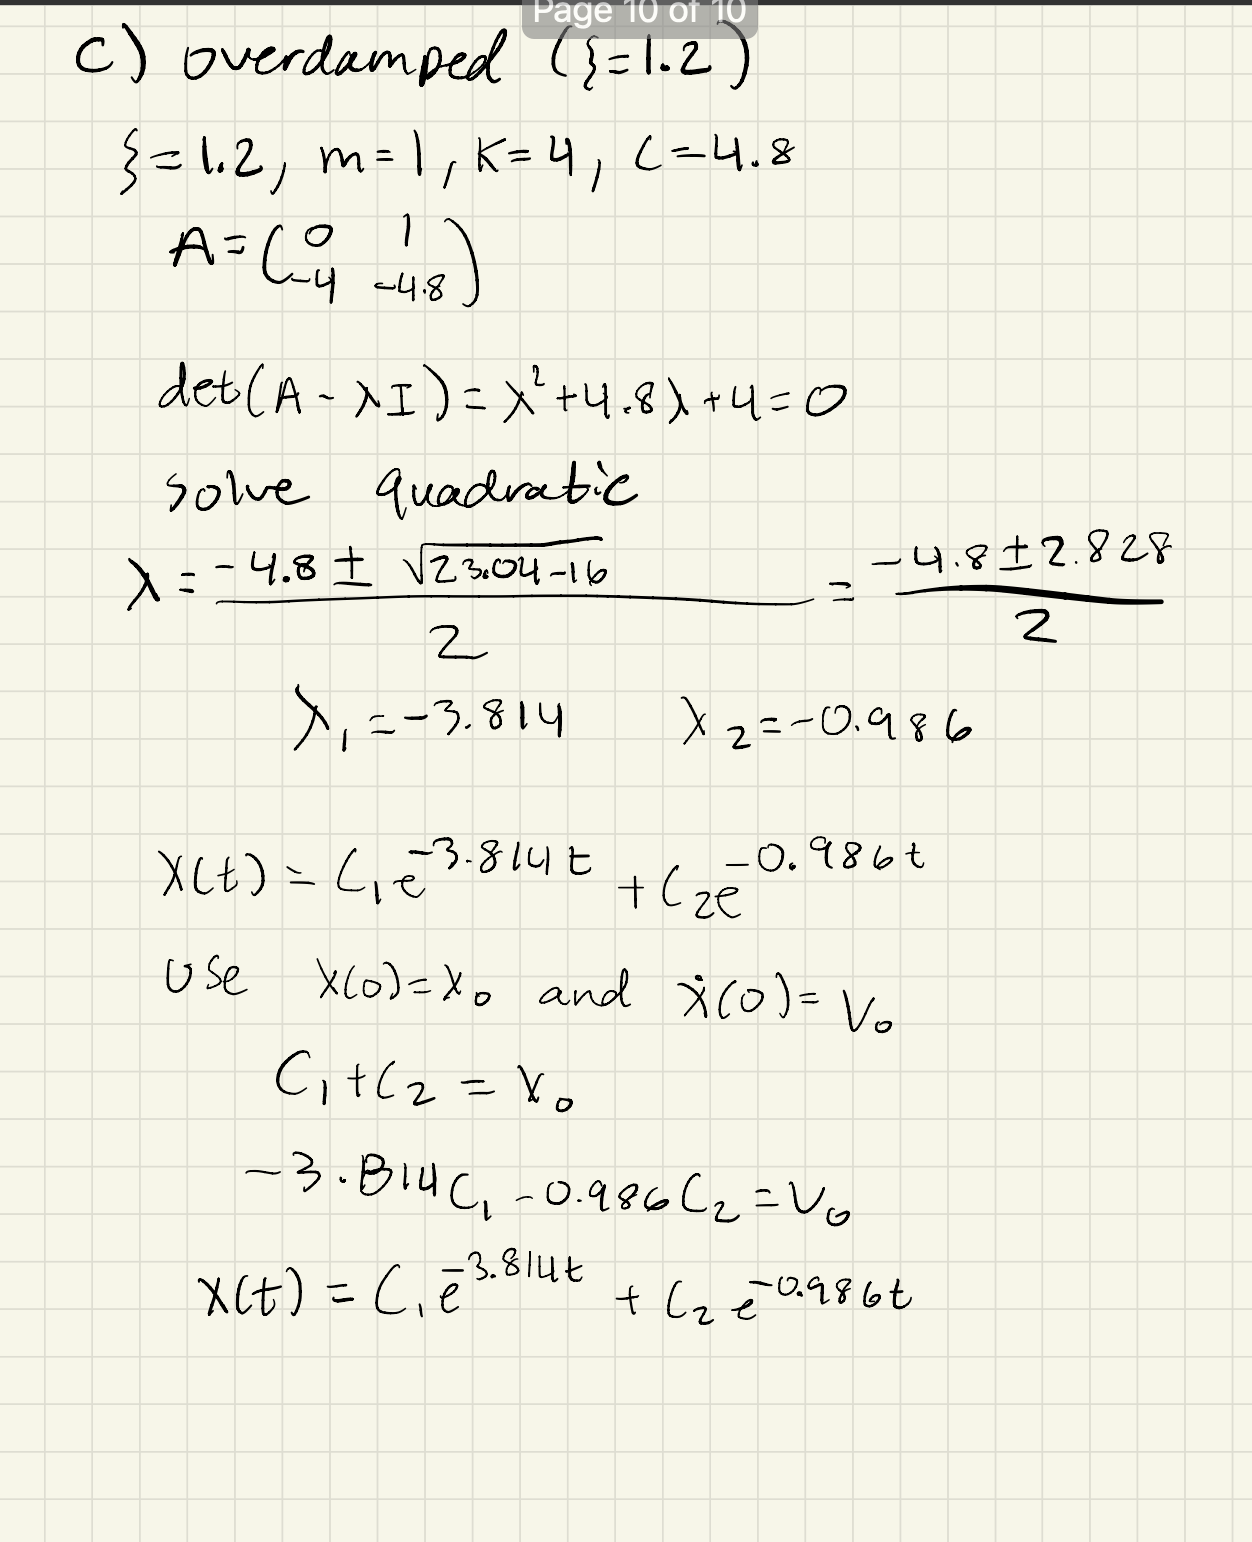 Page 10 of 10
c) overdamped (ξ=1.2)
ξ=1.2, m=1, K=4, C=4.8
A=(0 1
-4 -4.8)
det(A-λI)=λ²+4.8λ+4=0
solve quadratic
λ=(-4.8±√(23.04-16))/2=(-4.8±2.828)/2
λ₁=-3.814 λ₂=-0.986
x(t)=C₁e^(-3.814t)+C₂e^(-0.986t)
Use x(0)=x₀ and ẋ(0)=V₀
C₁+C₂=x₀
-3.814C₁-0.986C₂=V₀
x(t)=C₁e^(-3.814t)+C₂e^(-0.986t)